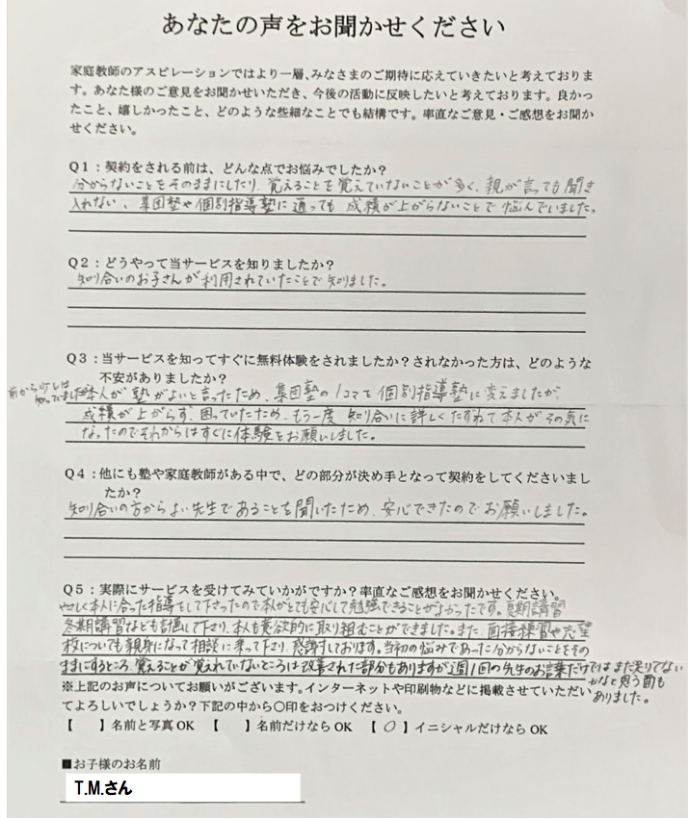 あなたの声をお聞かせください
家庭教師のアスピレーションではより一層、みなさまのご期待に応えていきたいと考えておりま
す。あなた様のご意見をお聞かせいただき、今後の活動に反映したいと考えております。良かっ
たこと、嬉しかったこと、どのような些細なことでも結構です。率直なご意見・ご感想をお聞か
せください。
Q1：契約をされる前は、どんな点でお悩みでしたか？
分からないことをそのままにしたり、覚えることを覚えていないことが多く、親が言っても聞き
入れない、集団塾や個別指導塾に通っても成績が上がらないことで悩んでいました。
Q2：どうやって当サービスを知りましたか？
知り合いのお子さんが利用されていたことで知りました。
Q3：当サービスを知ってすぐに無料体験をされましたか？されなかった方は、どのような
不安がありましたか？
前から少しは
知っていました
本人が塾がよいと言ったため、集団塾の1コマを個別指導塾に変えましたが、
成績が上がらず、困っていたため、もう一度知り合いに詳しくたずねて本人がその気に
なったのでそれからはすぐに体験をお願いしました。
Q4：他にも塾や家庭教師がある中で、どの部分が決め手となって契約をしてくださいまし
たか？
知り合いの方からよい先生であることを聞いたため、安心できたのでお願いしました。
Q5：実際にサービスを受けてみていかがですか？率直なご感想をお聞かせください。
優しく本人に合った指導をして下さったので本人がとても安心して勉強できることがよかったです。夏期講習
冬期講習なども計画して下さり、本人も意欲的に取り組むことができました。また、面接練習や志望
校についても親身になって相談に乗って下さり、感謝しております。当初の悩みであった分からないことをその
ままにするところ、覚えることが覚えれていないところは改善された部分もありますが週1回の先生のお言葉だけではまだ足りてない
かなと思う面も
ありました。
※上記のお声についてお願いがございます。インターネットや印刷物などに掲載させていただい
てよろしいでしょうか？下記の中から〇印をおつけください。
【　】名前と写真OK 【　】名前だけならOK 【〇】イニシャルだけならOK
■お子様のお名前
T.M.さん